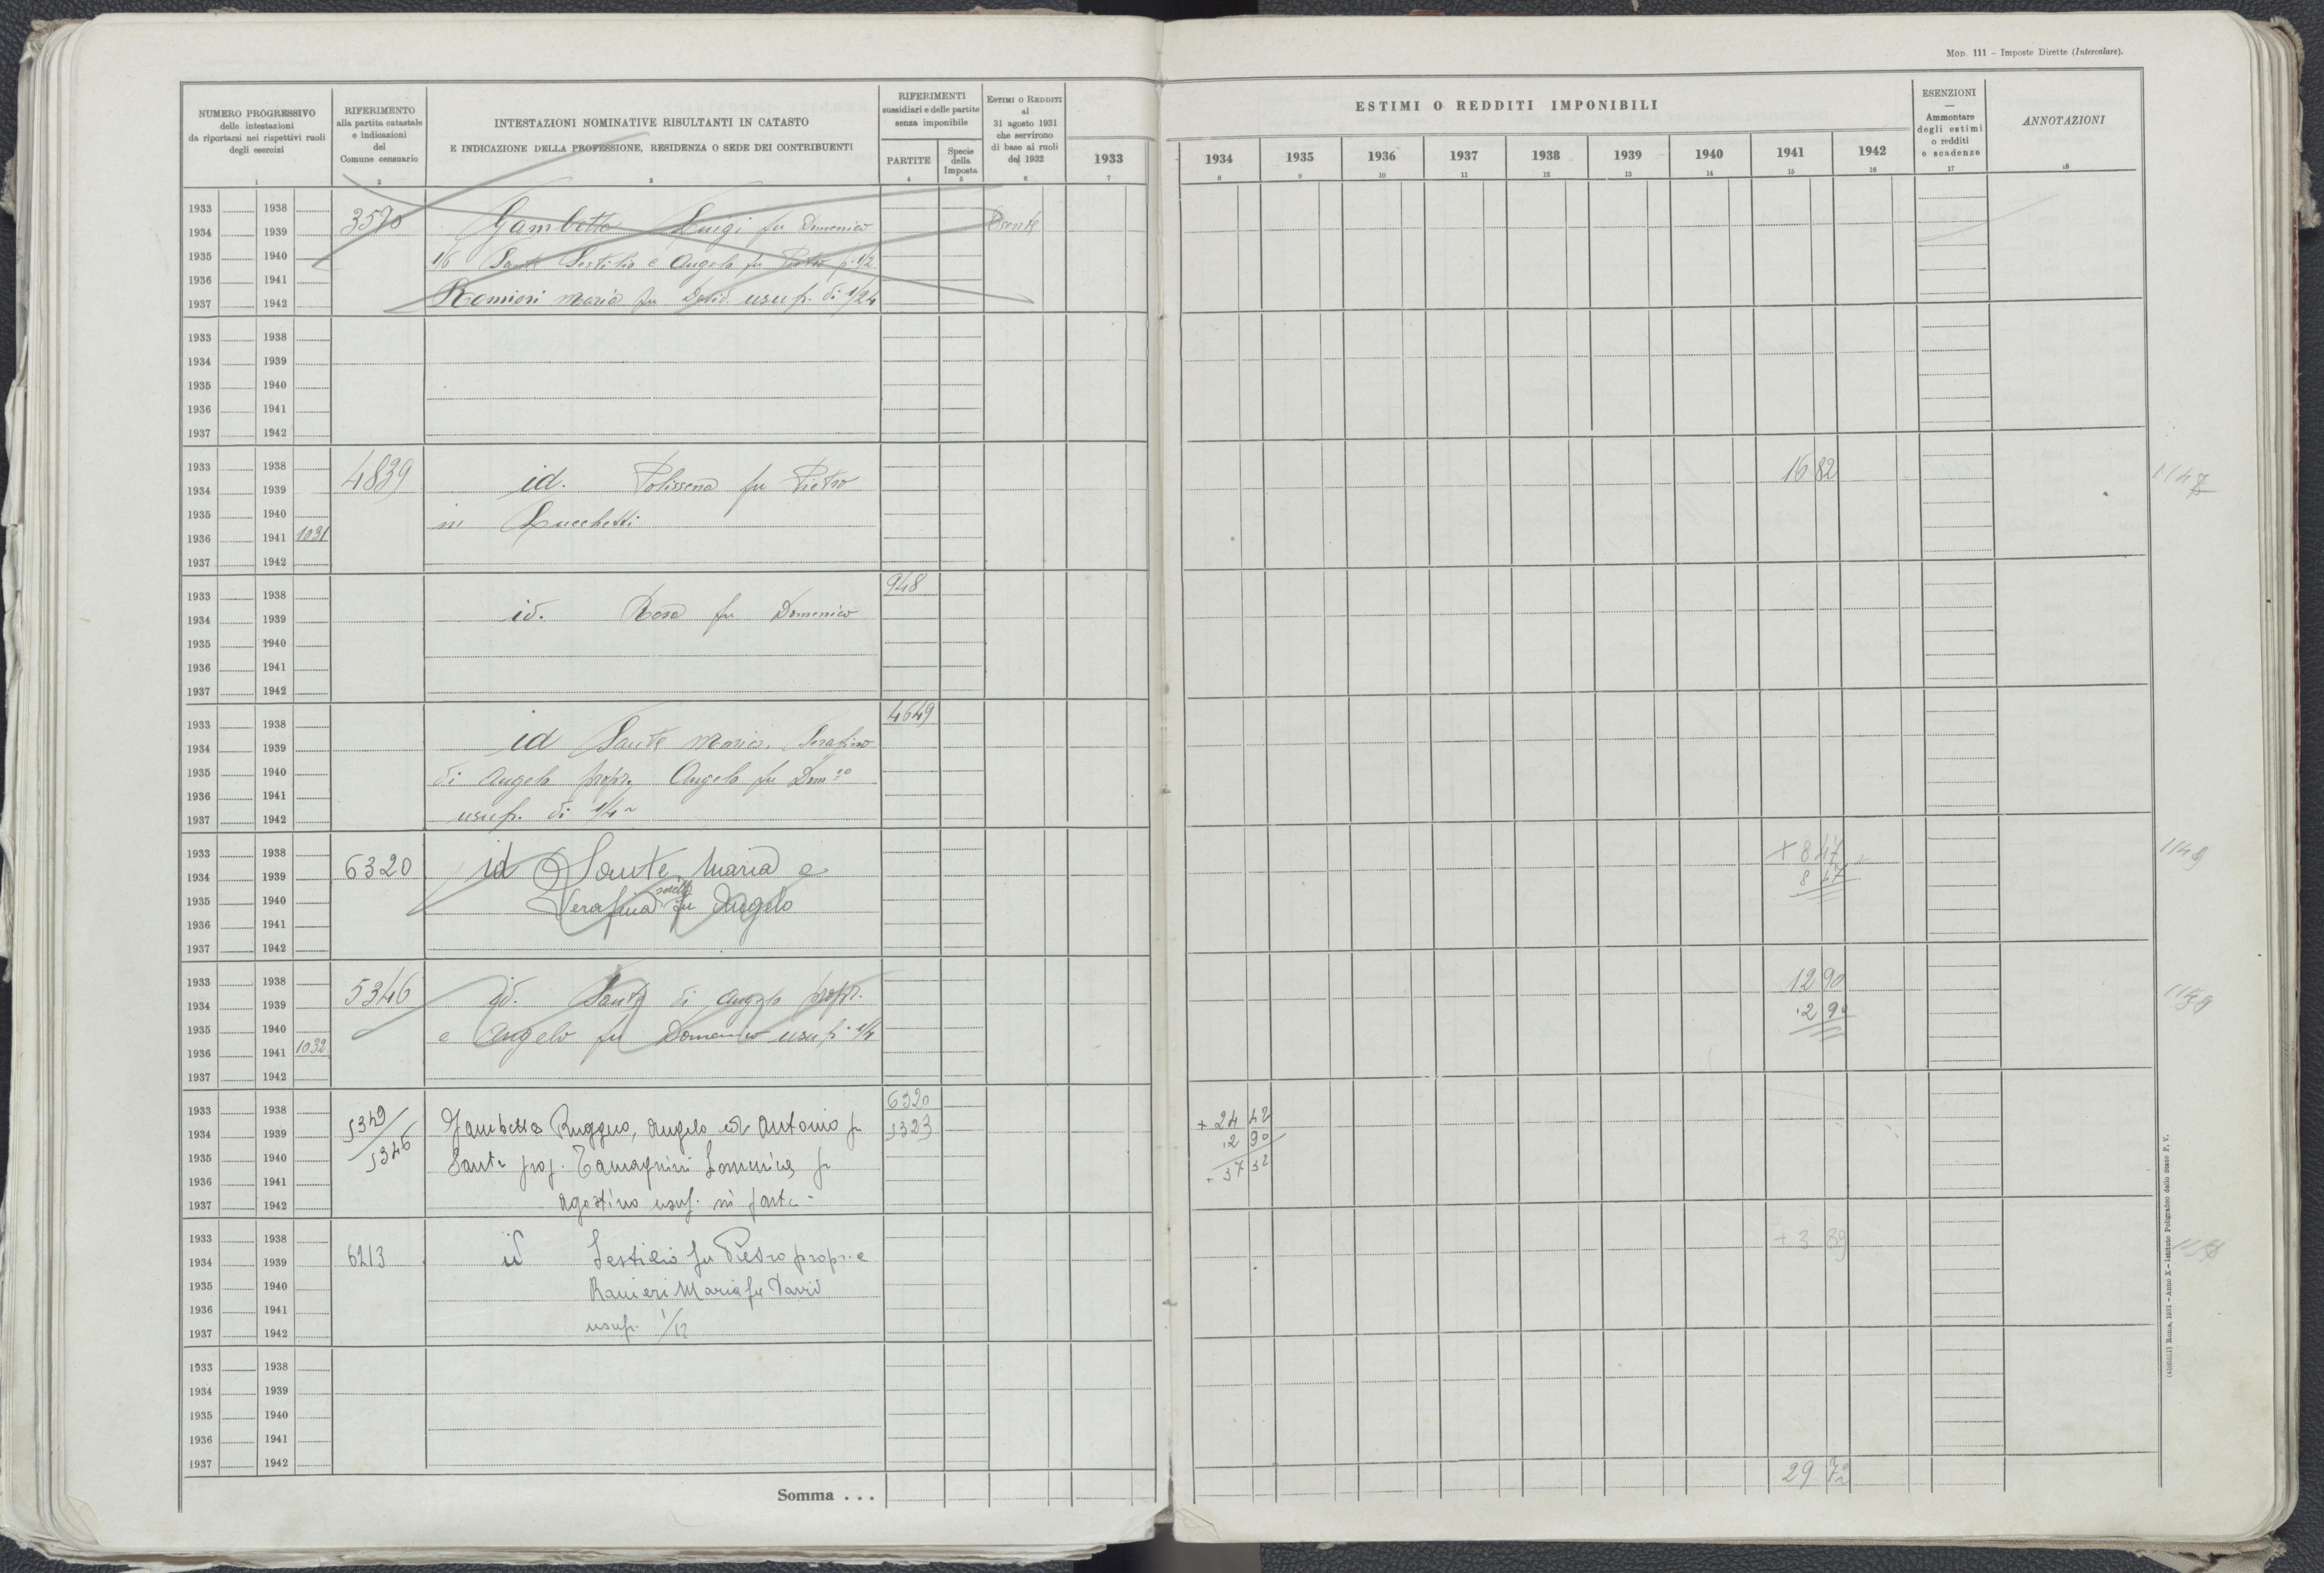 Mod. 111 – Imposte Dirette (Intercalare).
NUMERO PROGRESSIVO
delle intestazioni
da riportarsi nei rispettivi ruoli
degli esercizi
1
RIFERIMENTO
alla partita catastale
e indicazioni
del
Comune censuario
2
INTESTAZIONI NOMINATIVE RISULTANTI IN CATASTO
E INDICAZIONE DELLA PROFESSIONE, RESIDENZA O SEDE DEI CONTRIBUENTI
3
RIFERIMENTI
sussidiari e delle partite
senza imponibile
PARTITE
4
Specie
della
Imposta
5
Estimi o Redditi
al
31 agosto 1931
che servirono
di base ai ruoli
del 1932
6
1933
7
ESTIMI O REDDITI IMPONIBILI
1934 1935 1936 1937 1938 1939 1940 1941 1942
8 9 10 11 12 13 14 15 16
ESENZIONI
—
Ammontare
degli estimi
o redditi
e scadenze
17
ANNOTAZIONI
18
1933 1938
1934 1939 3570 Gambetta Luigi fu Domenico Esente
1935 1940 1/6 Sante Sestilio e Angelo fu Pietro p. 1/2
1936 1941
1937 1942 Ranieri Maria fu David usuf. di 1/24
1933 1938
1934 1939
1935 1940
1936 1941
1937 1942
1933 1938
1934 1939 4839 id. Polissena fu Pietro 16 82
1935 1940 in Lucchetti
1936 1941 1031
1937 1942
948
1933 1938
1934 1939 id. Rosa fu Domenico
1935 1940
1936 1941
1937 1942
4649
1933 1938
1934 1939 id Sante Maria, Serafino
1935 1940 di Angelo propr. Angelo fu Dom.co
1936 1941
1937 1942 usuf. di 1/4
1933 1938 + 8 47
1934 1939 6320 id Sante, Maria e 8 47
1935 1940 Serafina fu Angelo
1936 1941
1937 1942
1933 1938 12 90
1934 1939 5346 id. Sante di Angelo propr. 2 90
1935 1940 e Angelo fu Domenico usuf. 1/4
1936 1941 1032
1937 1942
6320
1933 1938 5349 + 24 42
1934 1939 5346 Gambetta Ruggero, Angelo ed Antonio fu 5323 2 90
1935 1940 Sante prop. Tamagnini Domenica fu 37 32
1936 1941
1937 1942 Agostino usuf. in parte
1933 1938 + 3 39
1934 1939 6213 id Sestilio fu Pietro propr. e
1935 1940 Ranieri Maria fu David
1936 1941
1937 1942 usuf. 1/12
1933 1938
1934 1939
1935 1940
1936 1941
1937 1942
29 72
Somma . . .
(4100521) Roma, 1931 – Anno X – Istituto Poligrafico dello Stato P. V.